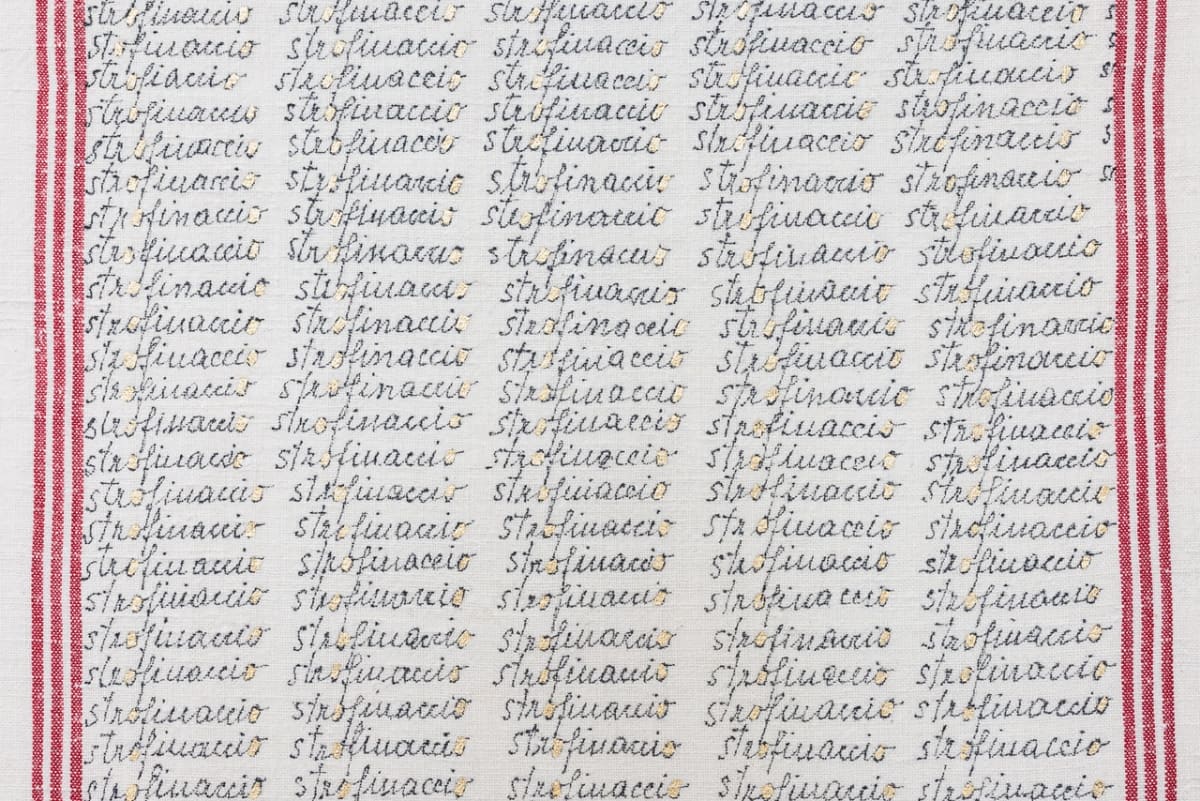 strofinaccio strofinaccio strofinaccio strofinaccio strofinaccio s
strofinaccio strofinaccio strofinaccio strofinaccio strofinaccio s
strofinaccio strofinaccio strofinaccio strofinaccio strofinaccio s
strofinaccio strofinaccio strofinaccio strofinaccio strofinaccio s
strofinaccio strofinaccio strofinaccio strofinaccio strofinaccio s
strofinaccio strofinaccio strofinaccio strofinaccio strofinaccio st
strofinaccio strofinaccio strofinaccio strofinaccio strofinaccio
strofinaccio strofinaccio strofinaccio strofinaccio strofinaccio
strofinaccio strofinaccio strofinaccio strofinaccio strofinaccio
strofinaccio strofinaccio strofinaccio strofinaccio strofinaccio
strofinaccio strofinaccio strofinaccio strofinaccio strofinaccio
strofinaccio strofinaccio strofinaccio strofinaccio strofinaccio
strofinaccio strofinaccio strofinaccio strofinaccio strofinaccio
strofinaccio strofinaccio strofinaccio strofinaccio strofinaccio
strofinaccio strofinaccio strofinaccio strofinaccio strofinaccio
strofinaccio strofinaccio strofinaccio strofinaccio strofinaccio
strofinaccio strofinaccio strofinaccio strofinaccio strofinaccio
strofinaccio strofinaccio strofinaccio strofinaccio strofinaccio
strofinaccio strofinaccio strofinaccio strofinaccio strofinaccio
strofinaccio strofinaccio strofinaccio strofinaccio strofinaccio
strofinaccio strofinaccio strofinaccio strofinaccio strofinaccio
strofinaccio strofinaccio strofinaccio strofinaccio strofinaccio
strofinaccio strofinaccio strofinaccio strofinaccio strofinaccio